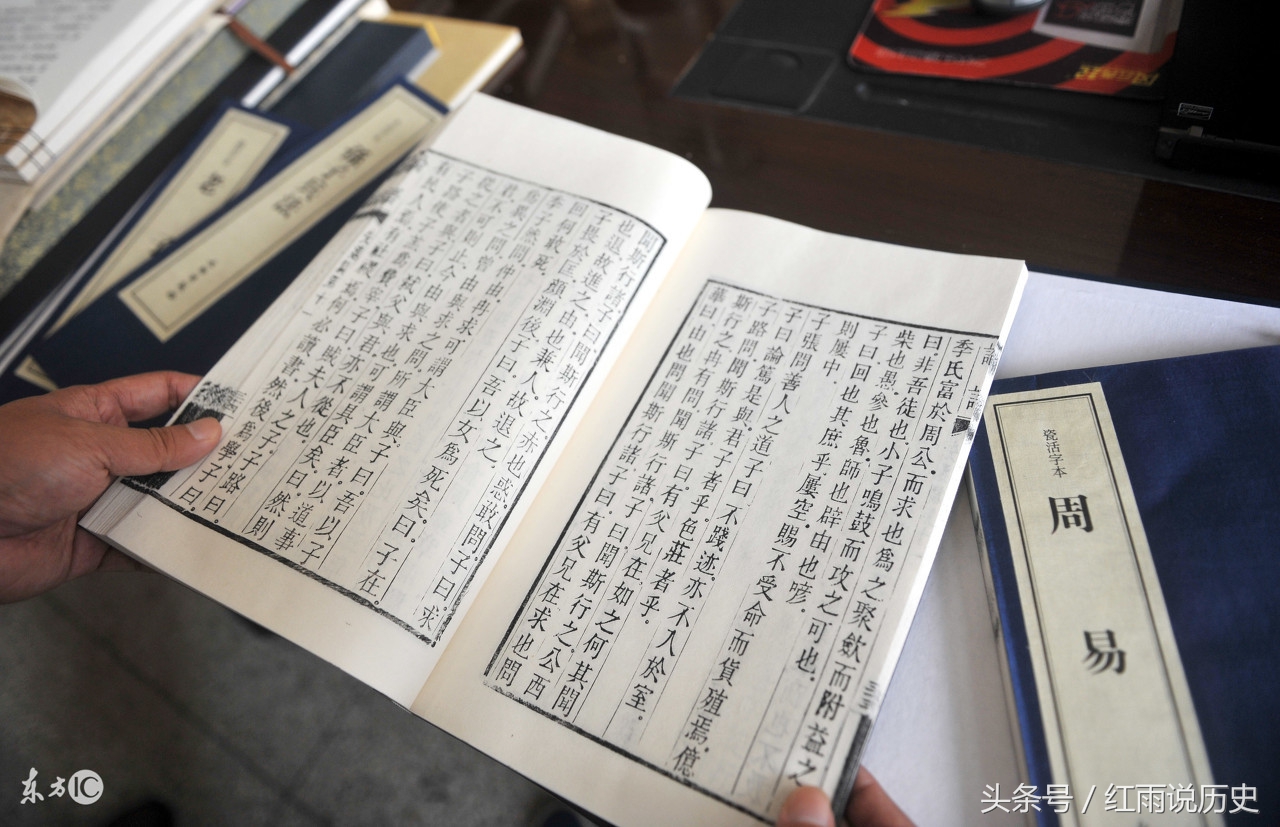 季氏富於周公。而求也爲之聚斂而附益之
曰非吾徒也小子鳴鼓而攻之可也。
柴也愚參也魯師也辟由也喭。
子曰回也其庶乎屢空賜不受命而貨殖焉億
則屢中。
子張問善人之道子曰不踐迹亦不入於室。
子曰論篤是與君子者乎。色莊者乎。
子路問聞斯行諸子曰。有父兄在如之何其聞
斯行之冉有問聞斯行諸子曰聞斯行之。公西
華曰由也問聞斯行諸子曰有父兄在求也問
聞斯行諸子曰聞斯行之赤也惑敢問子曰求
也退故進之由也兼人故退之。
子畏於匡顏淵後子曰吾以女爲死矣。曰。子在。
回何敢死。
季子然問仲由冉求可謂大臣與子曰。吾以子
爲異之問曾由與求之問所謂大臣者。以道事
君不可則止今由與求也可謂具臣矣。曰然則
從之者與子曰弑父與君亦不從也。
子路使子羔爲費宰子曰賊夫人之子。子路曰。
有民人焉有社稷焉何必讀書然後爲學子曰。
瓷活字本
周易
东方IC
头条号 / 红雨说历史